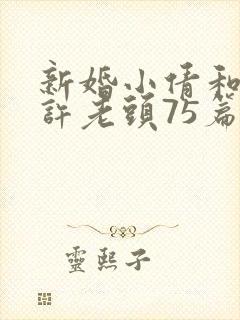 新婚小倩和
許老頭75篇
靈熙子